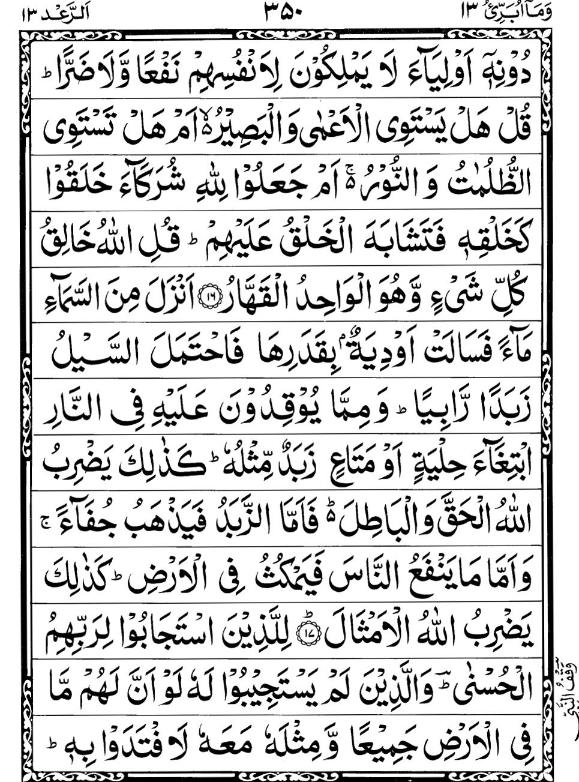 وَمَآ اُبَرِّئُ ١٣
٣٥٠
اَلرَّعْد ١٣
دُوْنِهٖۤ اَوْلِيَآءَ لَا يَمْلِكُوْنَ لِاَنْفُسِهِمْ نَفْعًا وَّلَا ضَرًّا ؕ
قُلْ هَلْ يَسْتَوِى الْاَعْمٰى وَالْبَصِيْرُ ۙ اَمْ هَلْ تَسْتَوِى
الظُّلُمٰتُ وَ النُّوْرُ ۚ اَمْ جَعَلُوْا لِلّٰهِ شُرَكَآءَ خَلَقُوْا
كَخَلْقِهٖ فَتَشَابَهَ الْخَلْقُ عَلَيْهِمْ ؕ قُلِ اللّٰهُ خَالِقُ
كُلِّ شَىْءٍ وَّهُوَ الْوَاحِدُ الْقَهَّارُ ﴿١٦﴾ اَنْزَلَ مِنَ السَّمَآءِ
مَآءً فَسَالَتْ اَوْدِيَةٌۢ بِقَدَرِهَا فَاحْتَمَلَ السَّيْلُ
زَبَدًا رَّابِيًا ؕ وَمِمَّا يُوْقِدُوْنَ عَلَيْهِ فِى النَّارِ
ابْتِغَآءَ حِلْيَةٍ اَوْ مَتَاعٍ زَبَدٌ مِّثْلُهٗ ؕ كَذٰلِكَ يَضْرِبُ
اللّٰهُ الْحَقَّ وَالْبَاطِلَ ؕ۬ فَاَمَّا الزَّبَدُ فَيَذْهَبُ جُفَآءً ۚ
وَاَمَّا مَا يَنْفَعُ النَّاسَ فَيَمْكُثُ فِى الْاَرْضِ ؕ كَذٰلِكَ
يَضْرِبُ اللّٰهُ الْاَمْثَالَ ؕ ﴿١٧﴾ لِلَّذِيْنَ اسْتَجَابُوْا لِرَبِّهِمُ
الْحُسْنٰى ؔؕ وَالَّذِيْنَ لَمْ يَسْتَجِيْبُوْا لَهٗ لَوْ اَنَّ لَهُمْ مَّا
فِى الْاَرْضِ جَمِيْعًا وَّمِثْلَهٗ مَعَهٗ لَافْتَدَوْا بِهٖ ؕ
وقف النبی